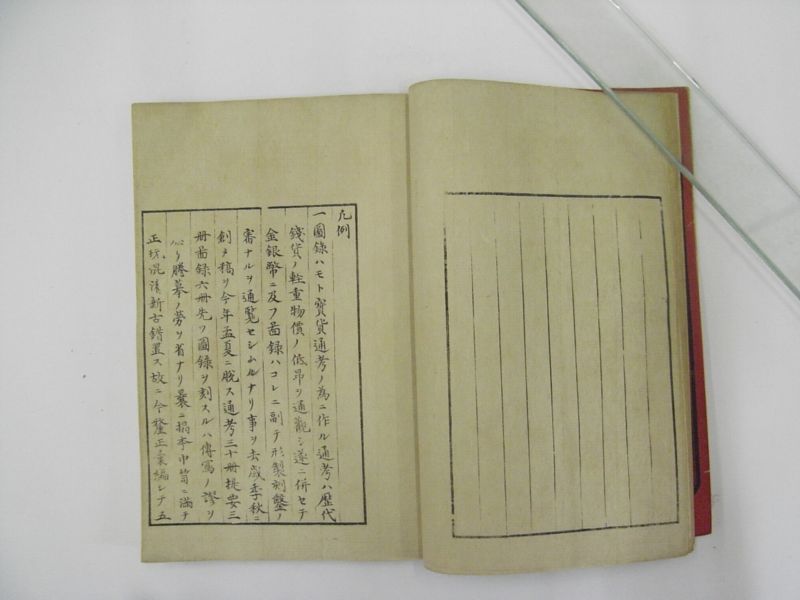 凡例
一圖錄ハモト寶貨通考ノ為ニ作ル通考ハ歷代
錢貨ノ輕重物價ノ低昂ヲ通觀シ遂ニ併セテ
金銀幣ニ及フ啚錄ハコレニ副テ形製刻鑿ノ
審ナルヲ通覧セシムルナリ事ヲ去歳季秋ニ
創メ稿リ今年孟夏ニ脫ス通考三十册提要三
册啚錄六册先ツ圖錄ヲ刻スルハ傳寫ノ謬ヲ
ノ勞ヲ省ナリ曩ニ搨本巾笥ニ滿テ
正新古錯置ス故ニ今釐正彙編シテ五